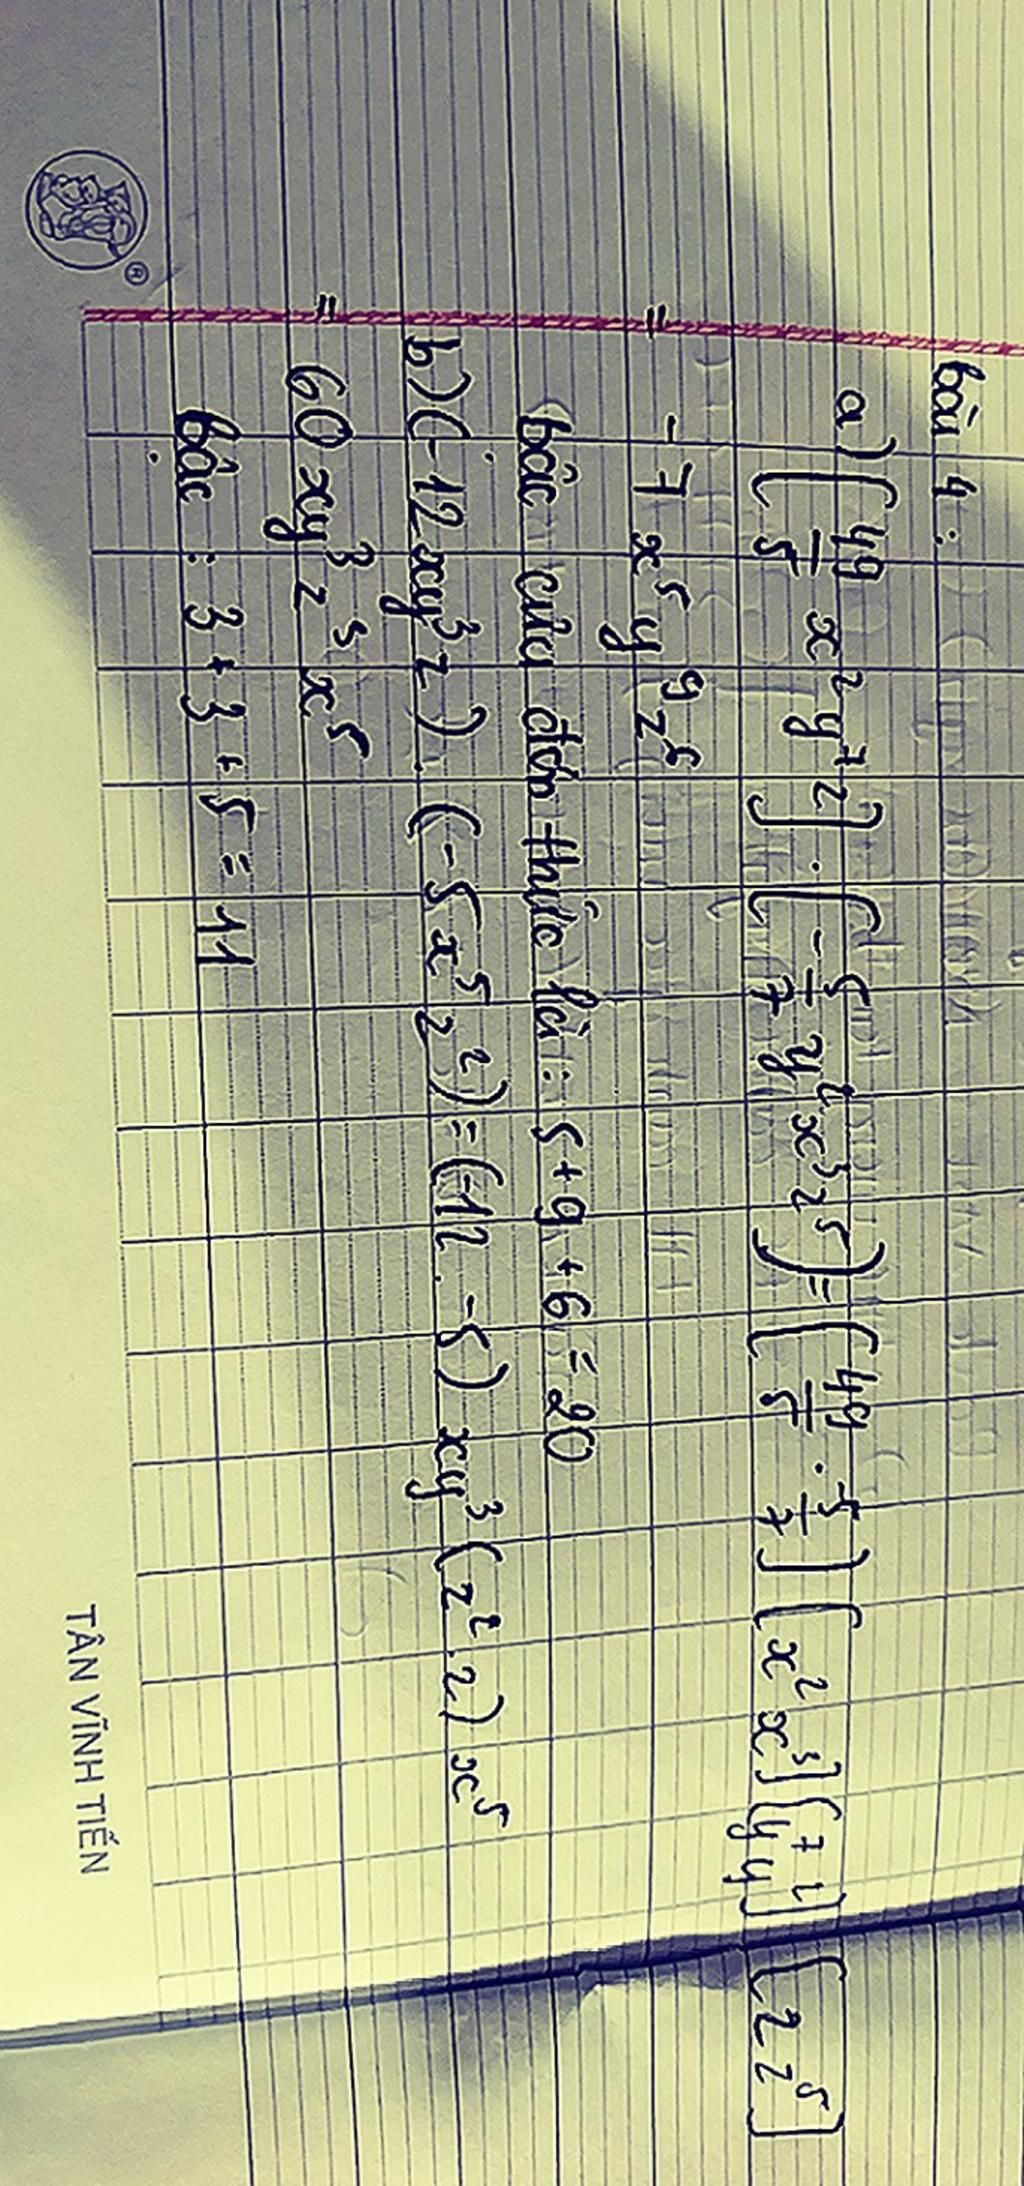 bài 4:
a) (49/5 x²y⁷z) . (-5/7 y²x³z⁵) = (49/5 . -5/7) (x²x³) (y⁷y²) (z z⁵)
= -7 x⁵y⁹z⁶
bậc của đơn thức là : 5+9+6 = 20
b) (-12xy³z) . (-5x⁵z²) = (-12 . -5) xy³ (z².z) x⁵
= 60 xy³z³x⁵
bậc : 3 + 3 + 5 = 11
®
TÂN VĨNH TIẾN